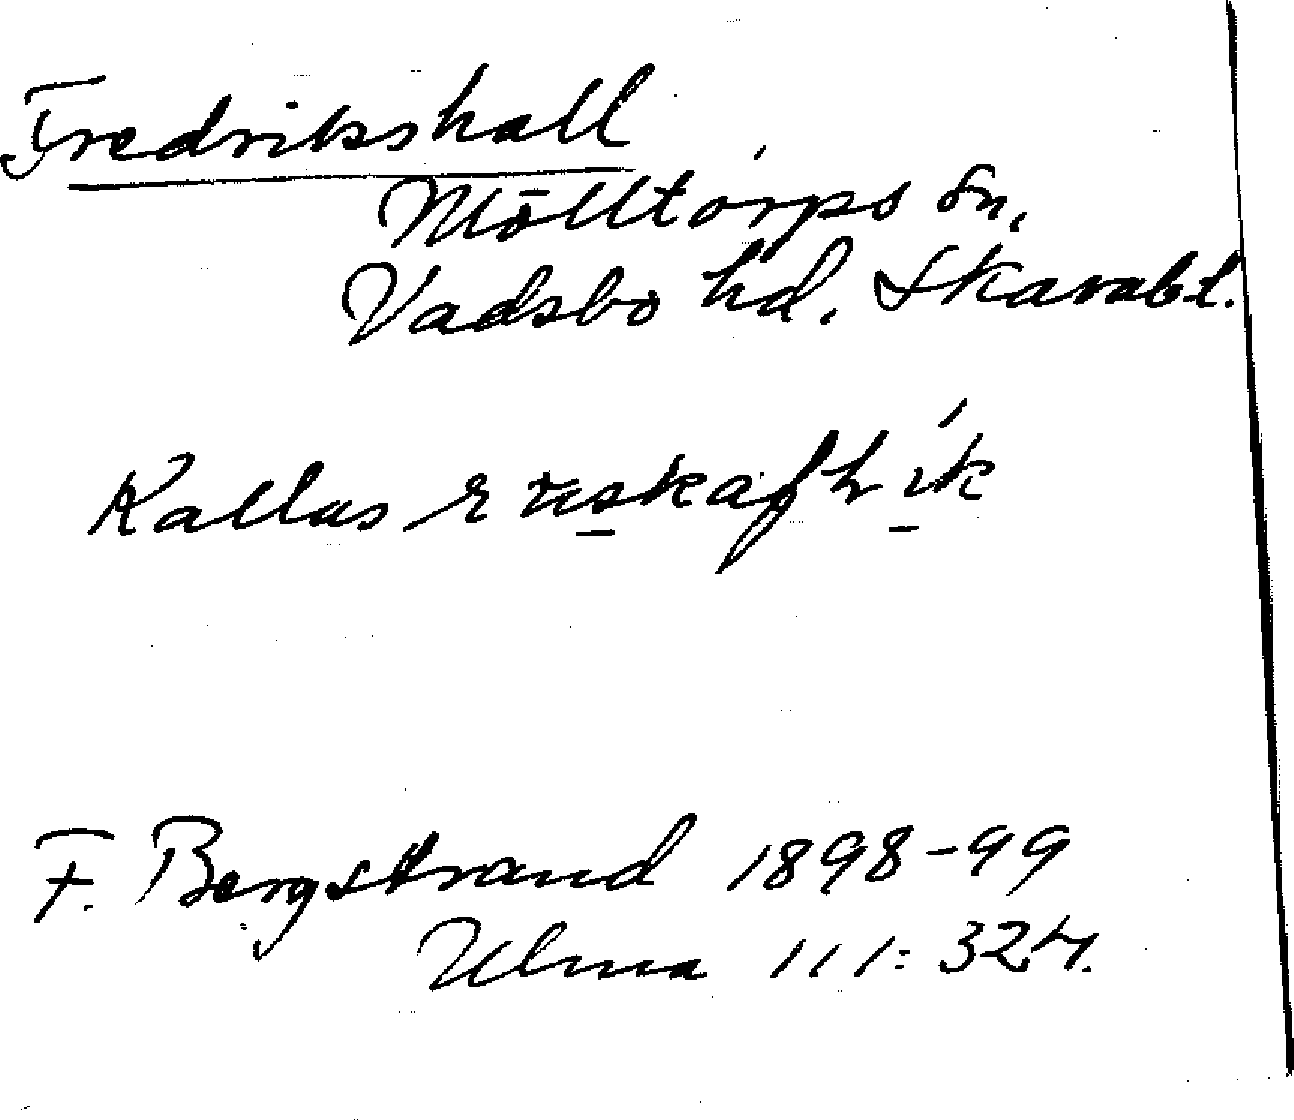 Fredrikshall
Mölltorps sn,
Vadsbo hd. Skarabl.
Kallas
F. Bergstrand 1898-99
Ulma 111:324.